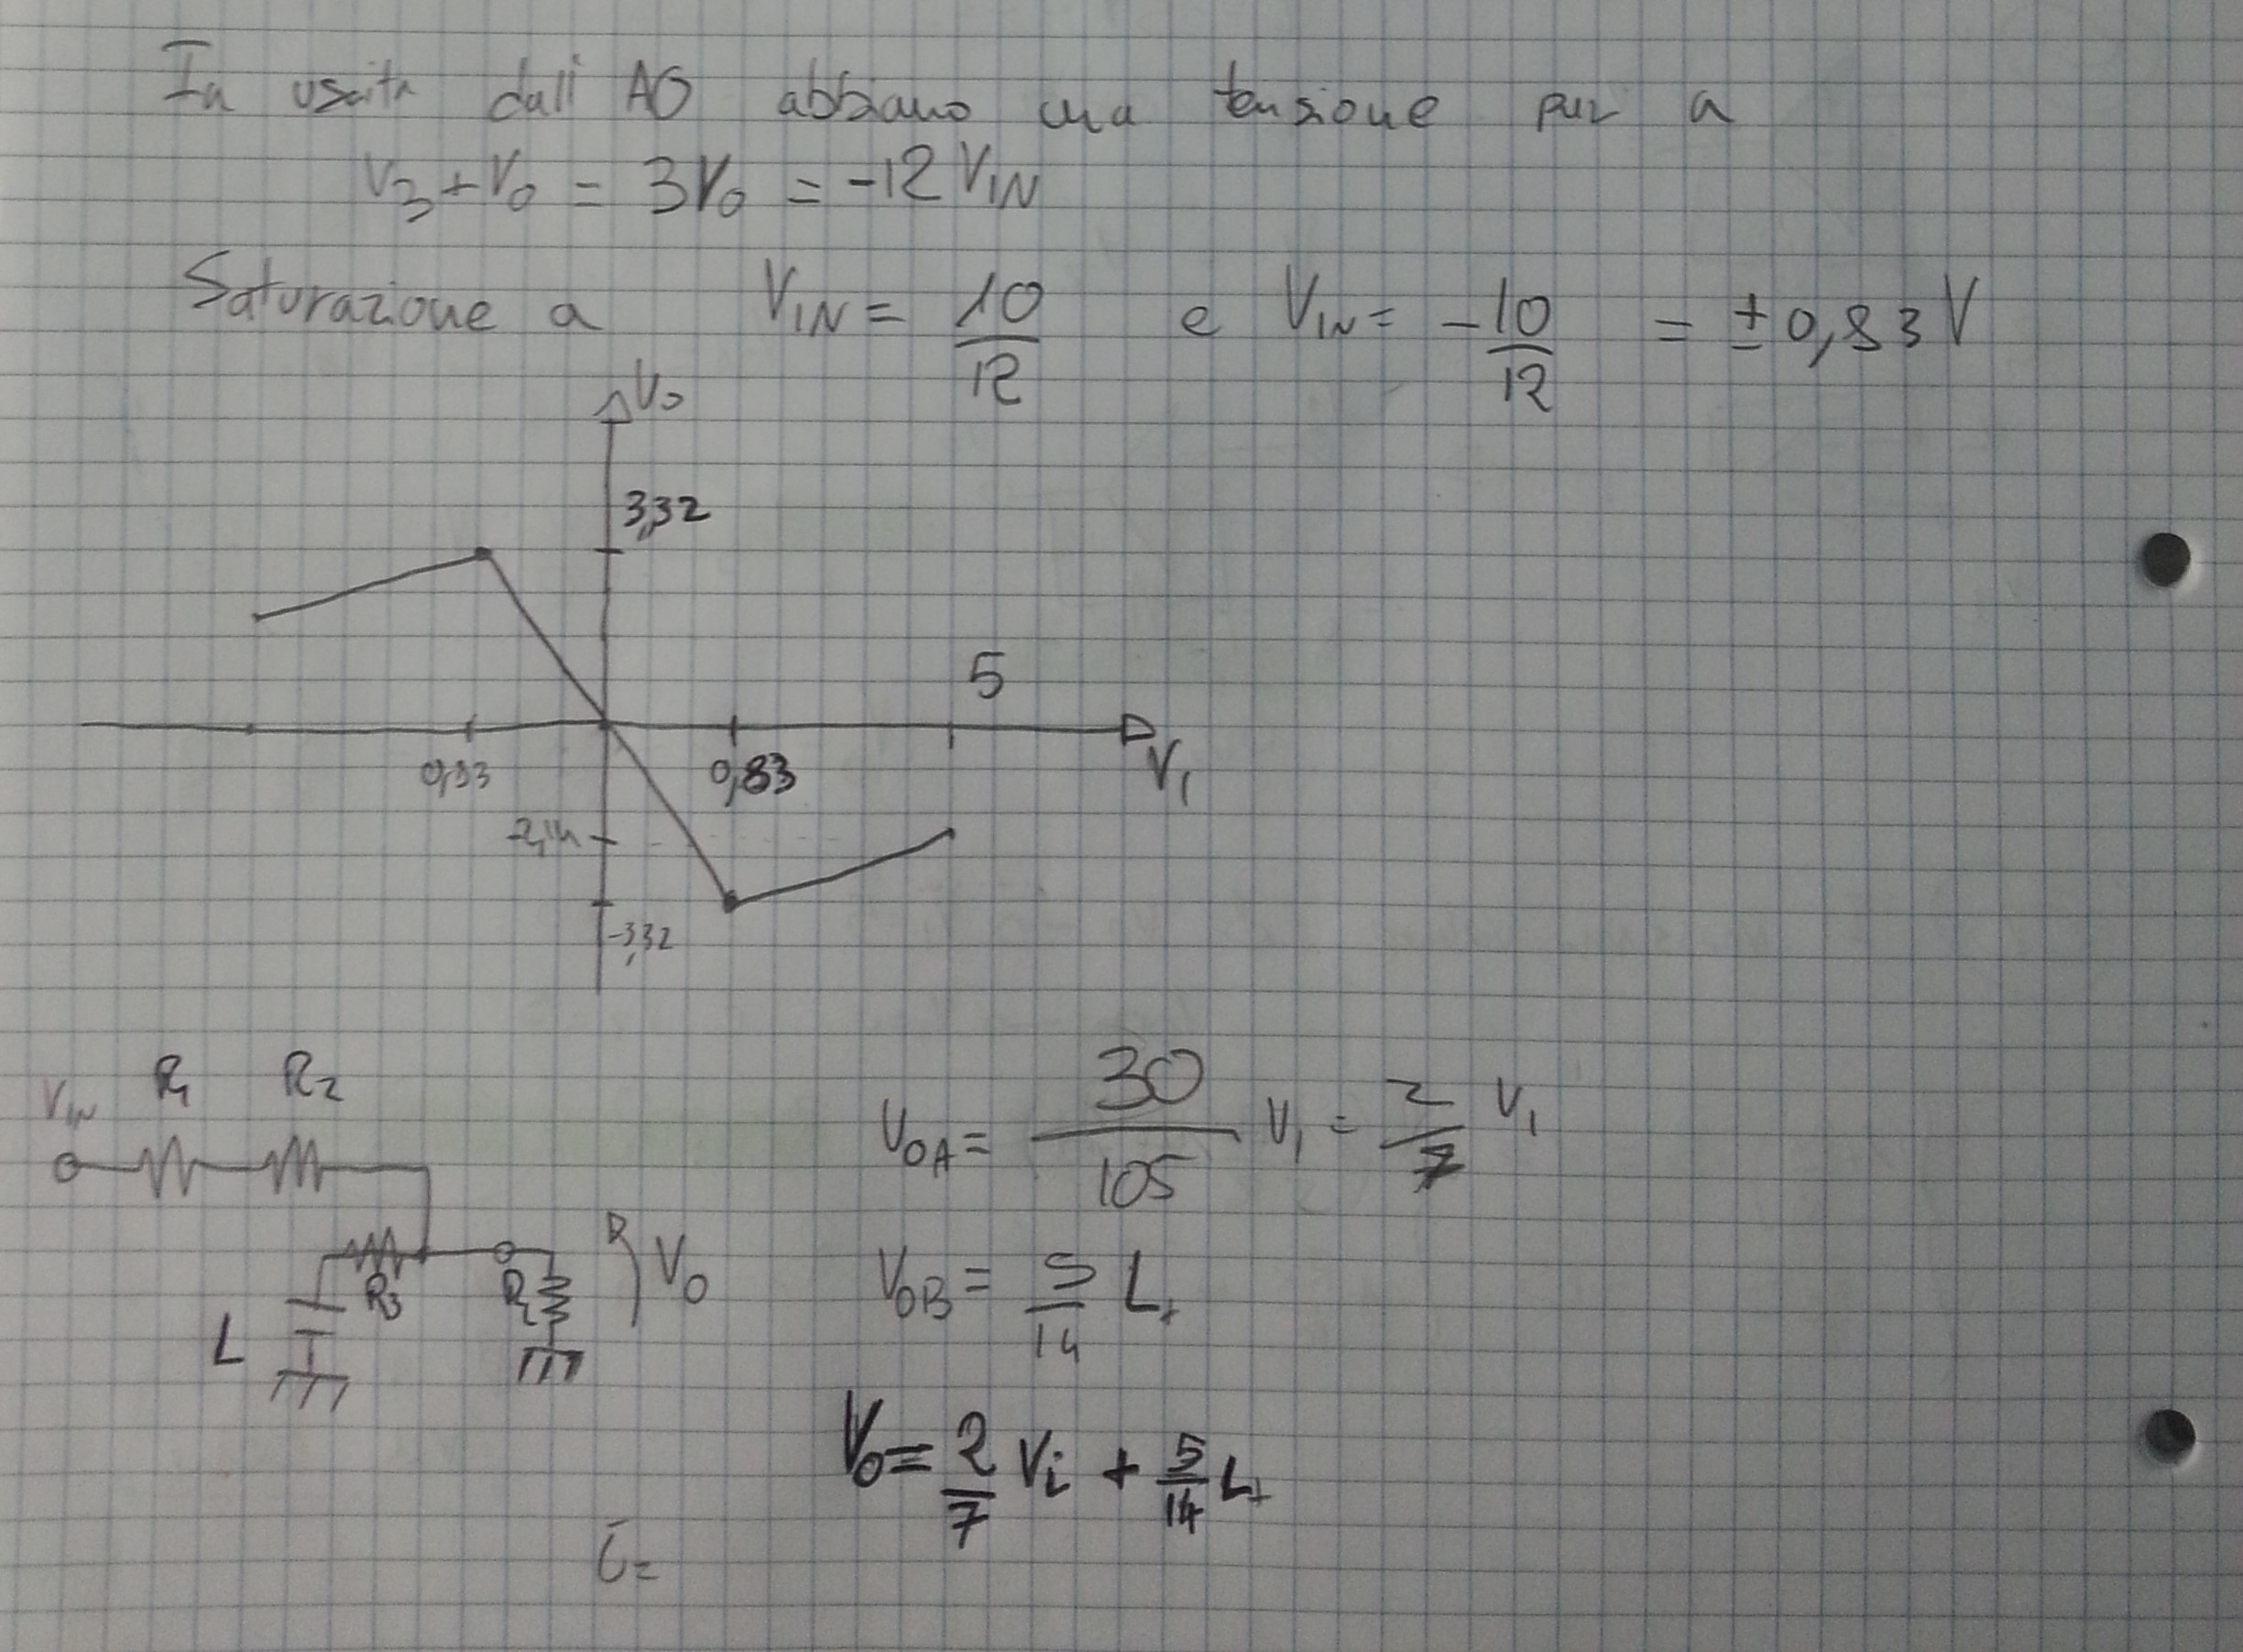 In uscita dall'AO abbiamo una tensione pari a
V3 + V0 = 3V0 = -12 VIN
Saturazione a VIN = 10/12 e VIN = -10/12 = ±0,83 V
V0
3,32
5
0,83 0,83 V1
-2,14
-3,32
VIN R1 R2
V0A = 30/105 V1 = 2/7 V1
R3 RL V0
V0B = 5/14 L+
L
V0 = 2/7 Vi + 5/14 L+